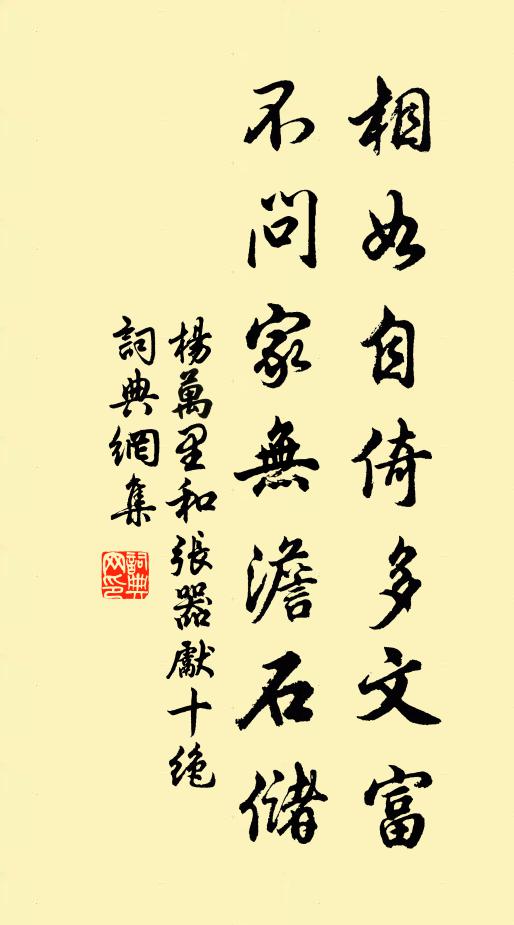 相如自倚多文富
不問家無澹石儲
楊萬里和張器獻十絶
詞典網集
詞典網印